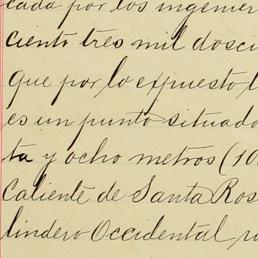 cada por los ingenier
ciento tres mil dosci
que por lo expuesto l
es un punto situado
ta y ocho metros (10
Caliente de Santa Ros
lindero Occidental